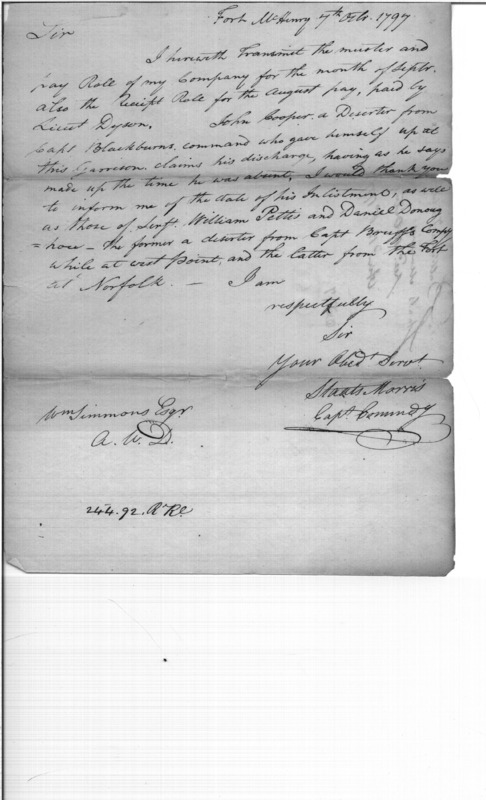 Fort McHenry 7th Octr. 1797
Sir
I herewith Transmit the muster and
pay Role of my Company for the month of Septr.
also the Receipt Role for the August pay, paid by
Lieut Dyson. John Cooper a Deserter from
Capt Blackburns command who gave himself up at
this Garrison claims his discharge, having as he says
made up the time he was absent, I would thank you
to inform me of the date of his Inlistment, as well
as those of Serjt. William Pettis and Daniel Donoug
=hoe - the former a deserter from Capt Bruffs Compy
while at west point, and the latter from the Fort
at Norfolk. — I am
respectfully
Sir
Your Obedt Servt.
Staats Morris
Capt. Commdg
Wm Simmons Esqr
A. W. D.
244.92.